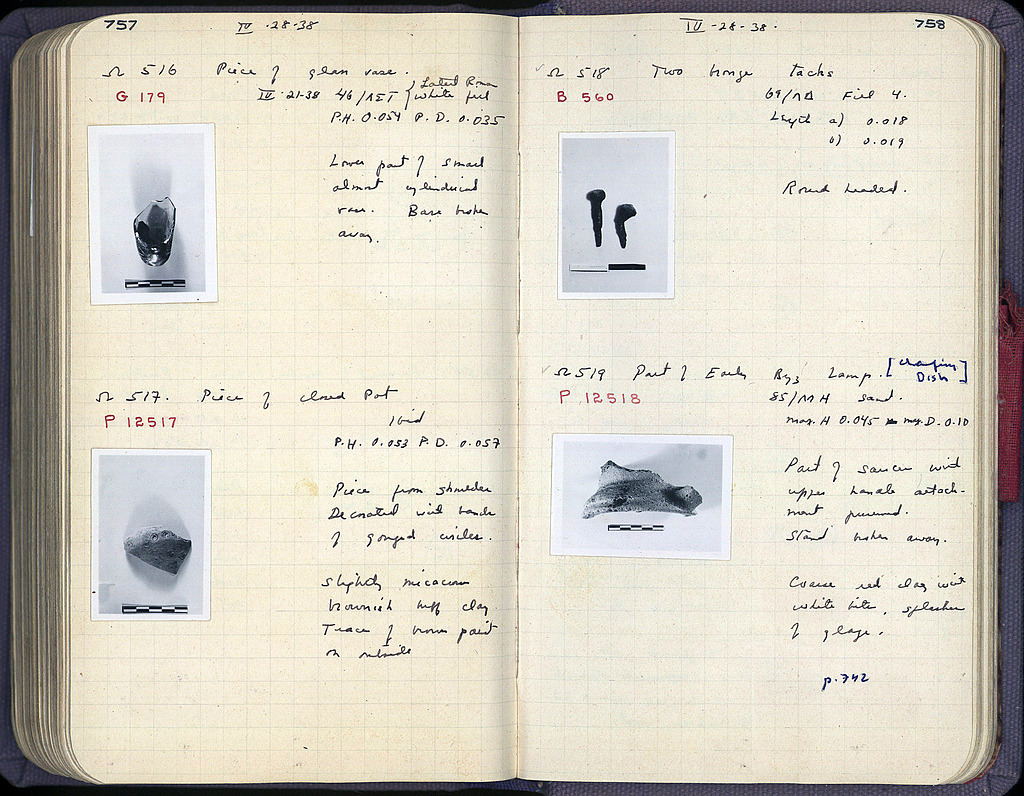 757
IV · 28 · 38
Ω 516 Piece of glass vase.
G 179
IV · 21 · 38 46/ΛΣΤ { Later Roman
white fill
P.H. 0.054 P.D. 0.035
Lower part of small
almost cylindrical
vase. Base broken
away.
Ω 517. Piece of closed Pot
P 12517
Ibid
P.H. 0.053 P.D. 0.057
Piece from shoulder
Decorated with bands
of gouged circles.
Slightly micaceous
brownish buff clay.
Trace of brown paint
on outside
758
IV - 28 - 38 ·
✓ Ω 518 Two bronze tacks
B 560
69/ΛΔ Fill 4.
Length a) 0.018
b) 0.019
Round headed.
✓ Ω 519 Part of Early Byz Lamp. [Chafing
Dish]
P 12518
85/ΛΗ sand.
max. H 0.045 max. D. 0.10
Part of saucer with
upper handle attach-
ment preserved.
Stand broken away.
Coarse red clay with
white bits, splashes
of glaze.
p. 742